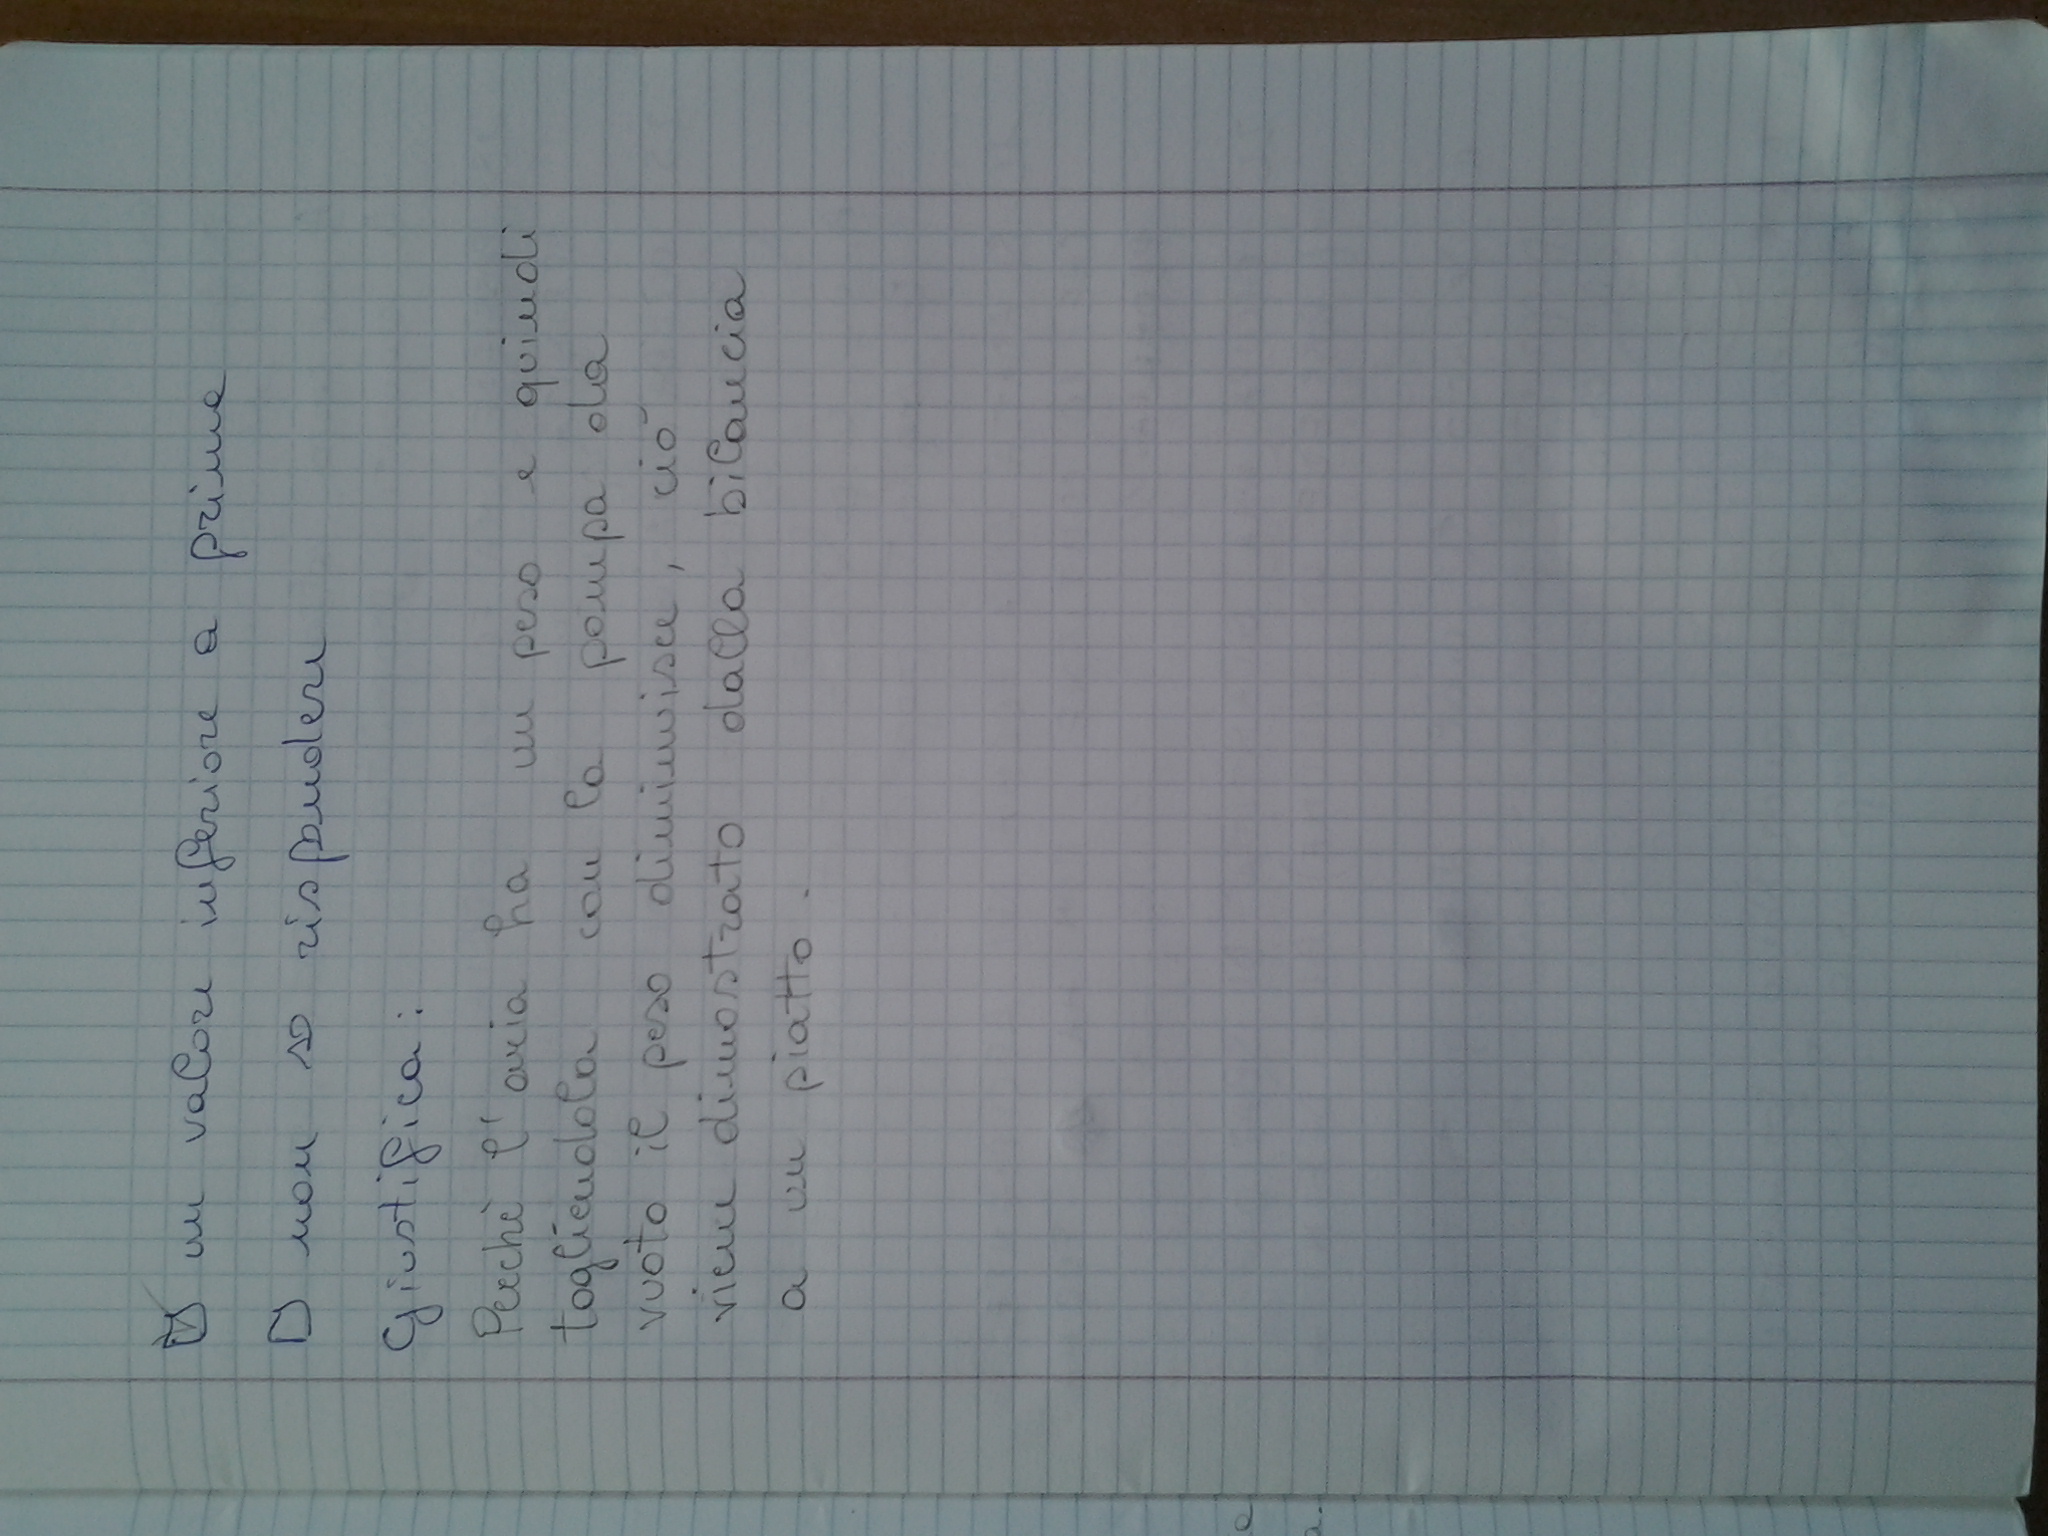 ☑ un valore inferiore a prima
☐ non so rispondere
Giustifica:
Perché l'aria ha un peso e quindi
togliendola con la pompa da
vuoto il peso diminuisce, ciò
viene dimostrato dalla bilancia
a un piatto.